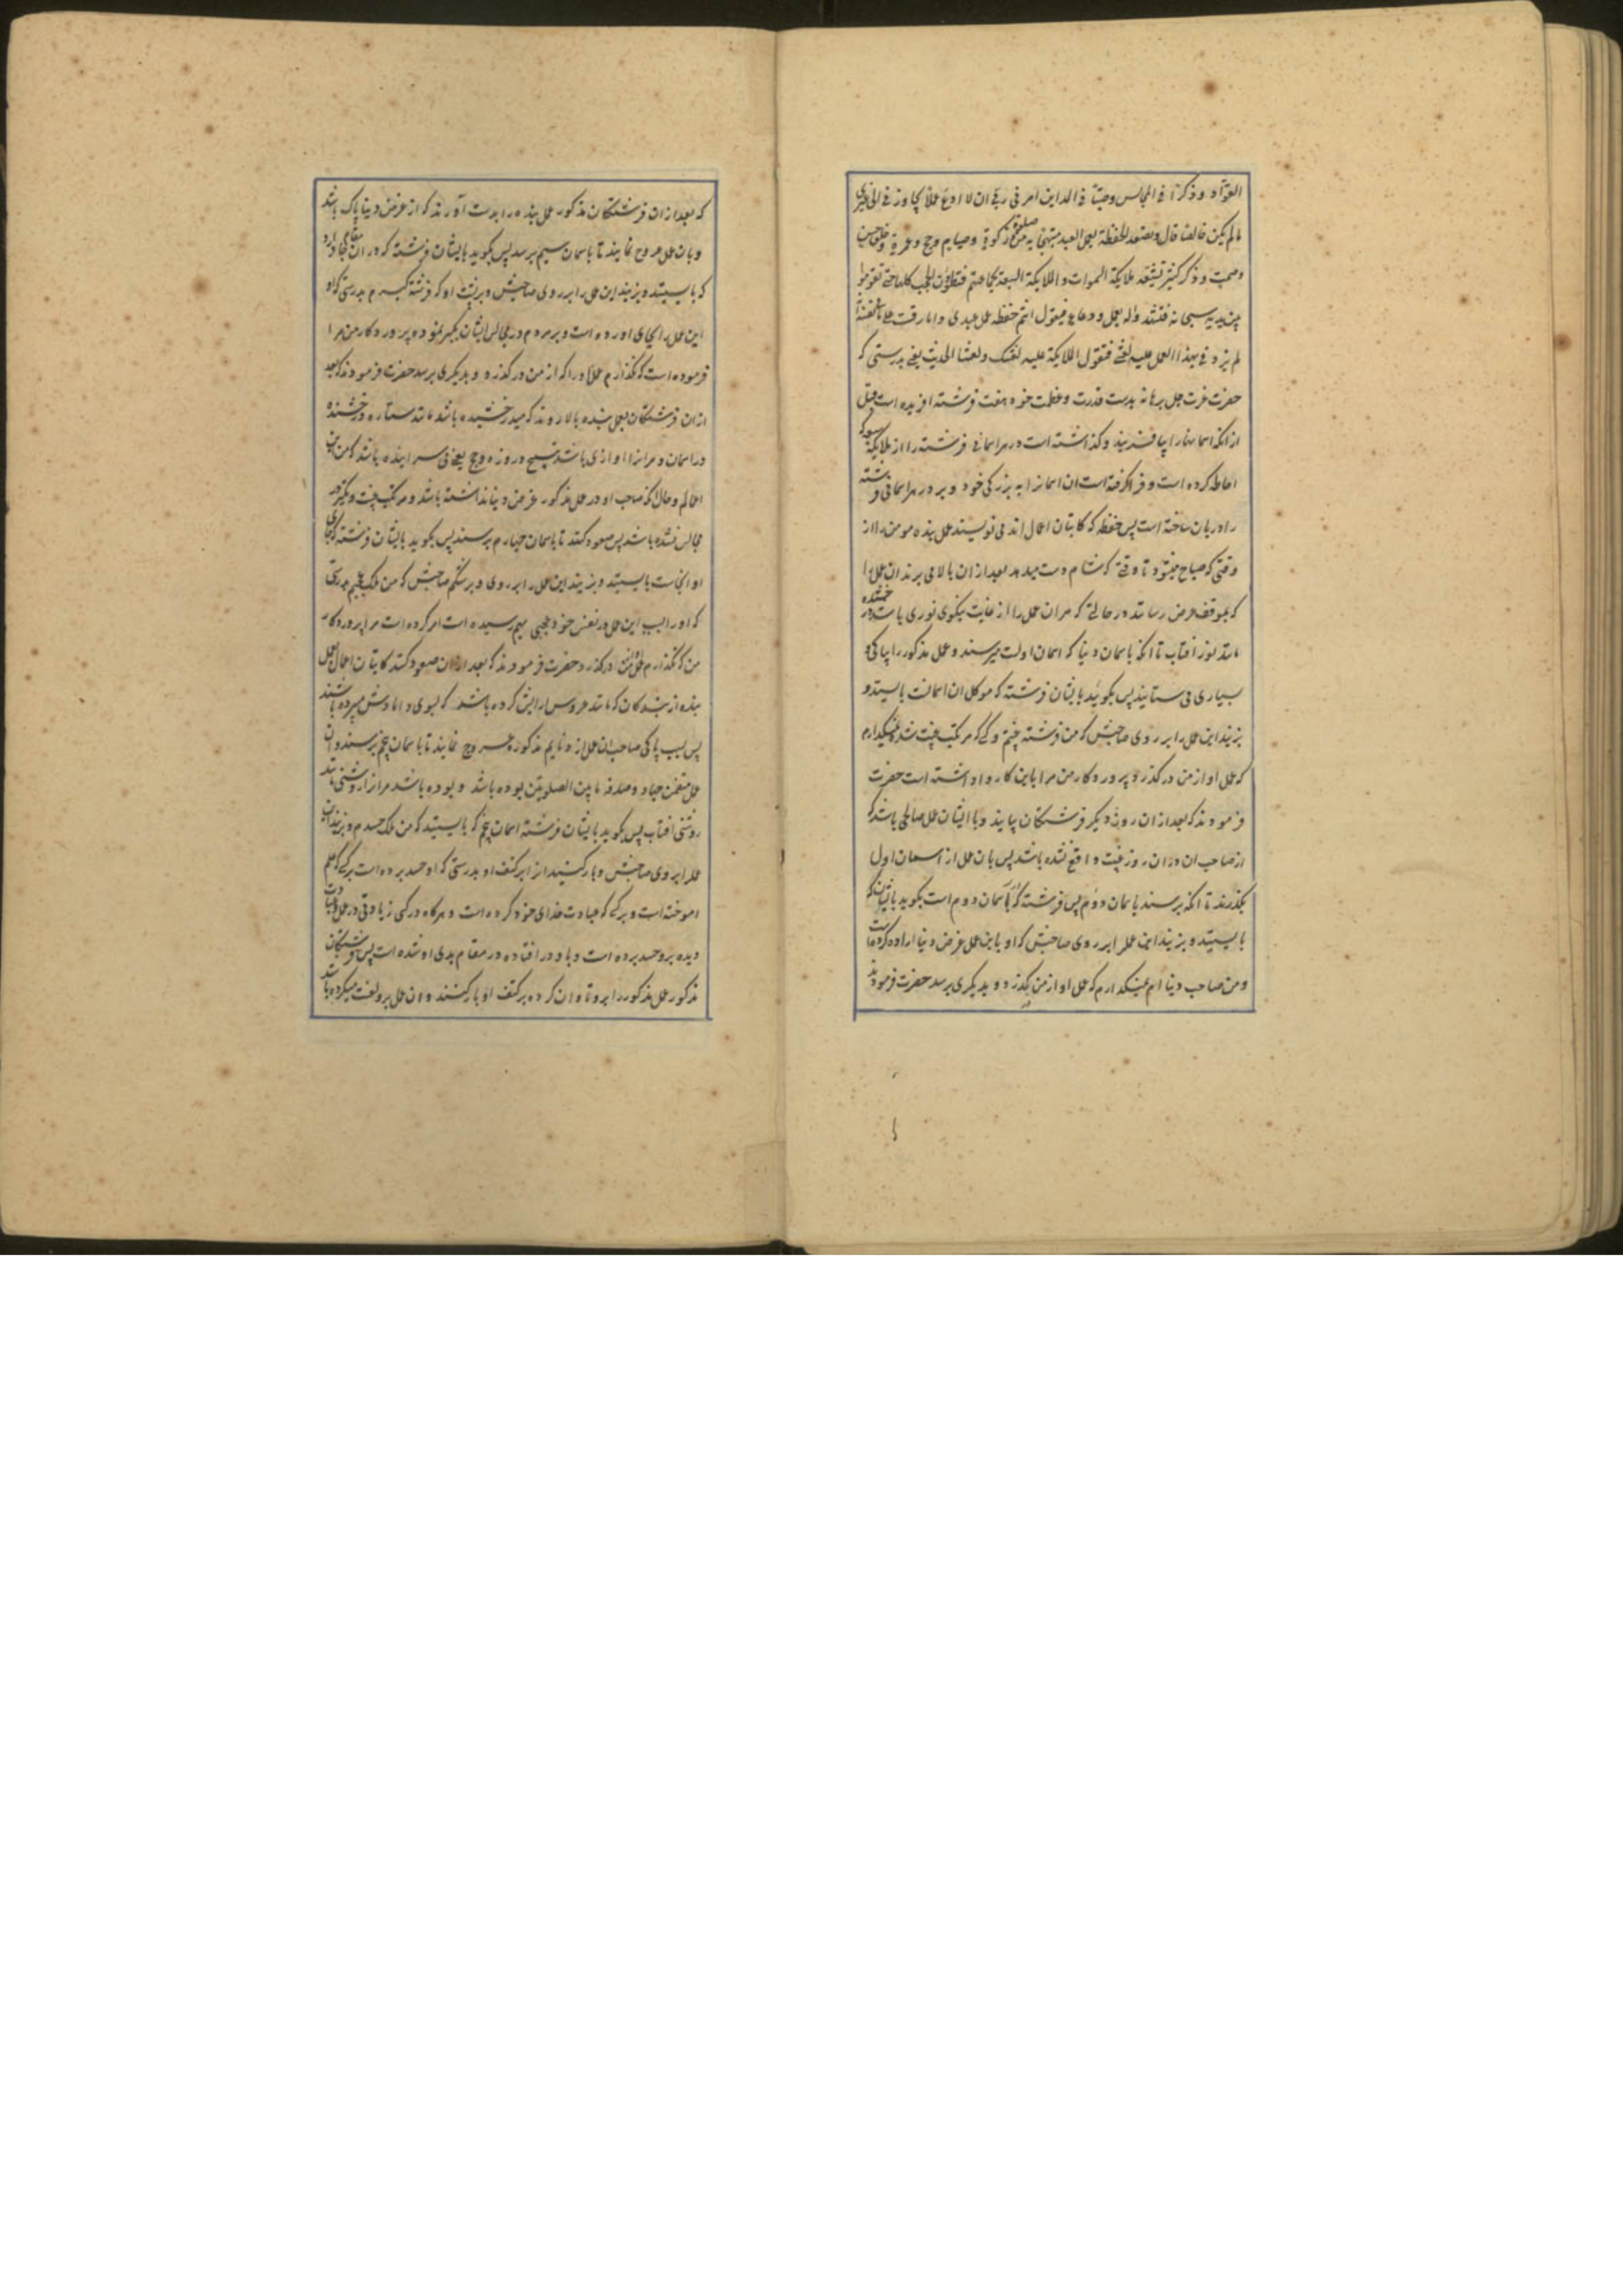 القوّاد و ذکرا فی المجالس و صیتا فی المداین امر فی ربی ان لا ادع عملا یجاوز فی الی غیری
مالم یکن خالصا قال و تصعد الحفظة بعمل العبد مبتهجا به من صلوة و زکوة و صیام و حج و عمرة و خلق حسن
و صمت و ذکر کثیر تشیعه ملایکة السموات و الملایکة السبعة بجماعتهم فیطؤن الحجب کلها حتی یقوموا
بین یدیه سبحانه فیشهدوا له بعمل و دعاء فیقول انتم حفظة عمل عبدی و انا رقیب علی ما نفسه
لم یردنی بهذا العمل علیه لعنتی فتقول الملایکة علیه لعنتک و لعنتنا الحدیث یعنی بدرستی که
حضرت عزت جل برهانه بدست قدرت و عظمت خود هفت فرشته افریده است قبل
از انکه اسمانها را بیافریند و کذاشته است در هر اسمانی فرشته را از ملایکة سبعه که
احاطه کرده است و فرا کرفته است ان اسمانرا به بزرکی خود و بر در هر اسمانی فرشته
را دربان ساخته است پس حفظه که کاتبان اعمال اند می نویسند عمل بنده مومن را از
وقتی که صباح میشود تا وقتی که شام دست میدهد بعد از ان بالا می برند ان عمل را
که بموقف عرض رسانند در حالتی که مر ان عمل را از غایت نیکوی نوری باشد درخشنده
مانند نور افتاب تا انکه باسمان دنیا که اسمان اولست میرسند و عمل مذکور را بپاکی و
بسیاری می ستایند پس بکوید بایشان فرشته که موکل ان اسمانست بایستید و
بزنید این عمل را بر روی صاحبش که من فرشته غیبتم و کسی که مرتکب غیبت شده نمیکذارم
که عمل او از من درکذرد پرورد کار من مرا باین کار وا داشته است حضرت
فرمودند که بعد از ان روز دیکر فرشتکان بیایند و با ایشان عمل صالحی باشد که
از صاحب ان در ان روز غیبت واقع نشده باشد پس بان عمل از اسمان اول
بکذرند تا انکه برسند باسمان دوم پس فرشته که در آسمان دوم است بکوید بایشان که
بایستید و بزنید این عمل را بر روی صاحبش که او باین عمل غرض دنیا اراده کرده است
و من صاحب دنیا ام نمیکذارم که عمل او از من بکذرد و بدیکری برسد حضرت فرمودند
که بعد از ان فرشتکان مذکور عمل بنده را بدست آورند که از غرض دنیا پاک باشد
و بان عمل عروج نمایند تا باسمان سیم برسد پس بکوید بایشان فرشته که در ان مقام جا دارد
که بایستید و بزنید این عمل را بر روی صاحبش و بر پشت او که فرشته کبرم بدرستی که او
این عمل را بجای اورده است و بر مردم در مجالس ایشان تکبر نموده پرورد کار من مرا
فرموده است که نکذارم عمل او را که از من درکذرد و بدیکری برسد حضرت فرمودند که بعد
از ان فرشتکان بعمل بنده بالا روند که میدرخشیده باشد مانند ستاره درخشنده
در اسمان و مر انرا اوازی باشد بتسبیح و روزه و حج یعنی می سرایند باشد که من این
اعمالم و حال انکه صاحب او در عمل مذکور غرض دنیا نداشته باشد و مرتکب غیبت و تکبر در
مجالس نشده باشد پس صعود کنند تا باسمان چهارم برسند پس بکوید بایشان فرشته که جای
او انجاست بایستید و بزنید این عمل را بر روی و بر شکم صاحبش که من ملک عجبم بدرستی
که او را بسبب این عمل در نفس خود عجبی بهم رسیده است امر کرده است مرا پرورد کار
من که نکذارم عمل او از من درکذرد حضرت فرمودند که بعد از ان صعود کنند کاتبان اعمال بعمل
بنده از بندکان که مانند عروس ارایش کرده باشد که بسوی دامادش میبرده باشند
پس بسبب پاکی صاحب ان عمل از ذمایم مذکوره عروج نمایند تا باسمان پنجم برسند و ان
عمل متضمن جهاد و صدقه ما بین الصلوتین بوده باشد و بوده باشد مر انرا روشنی مانند
روشنی افتاب پس بکوید بایشان فرشته اسمان پنجم که بایستید که من ملک حسدم و بزنید این
عمل را بر روی صاحبش و بار کنید انرا بر کتف او بدرستی که او حسد برده است بر کسی که علم
اموخته است و بر کسی که عبادت خدای خود کرده است و هر کاه در کسی زیادتی در عمل و عبادت
دیده برو حسد برده است و با او در افتاده در مقام بدی او شده است پس فرشتکان
مذکور عمل مذکور را برو تاوان کرده بر کتف او بار کنند و ان عمل برو لعنت میکرده باشد